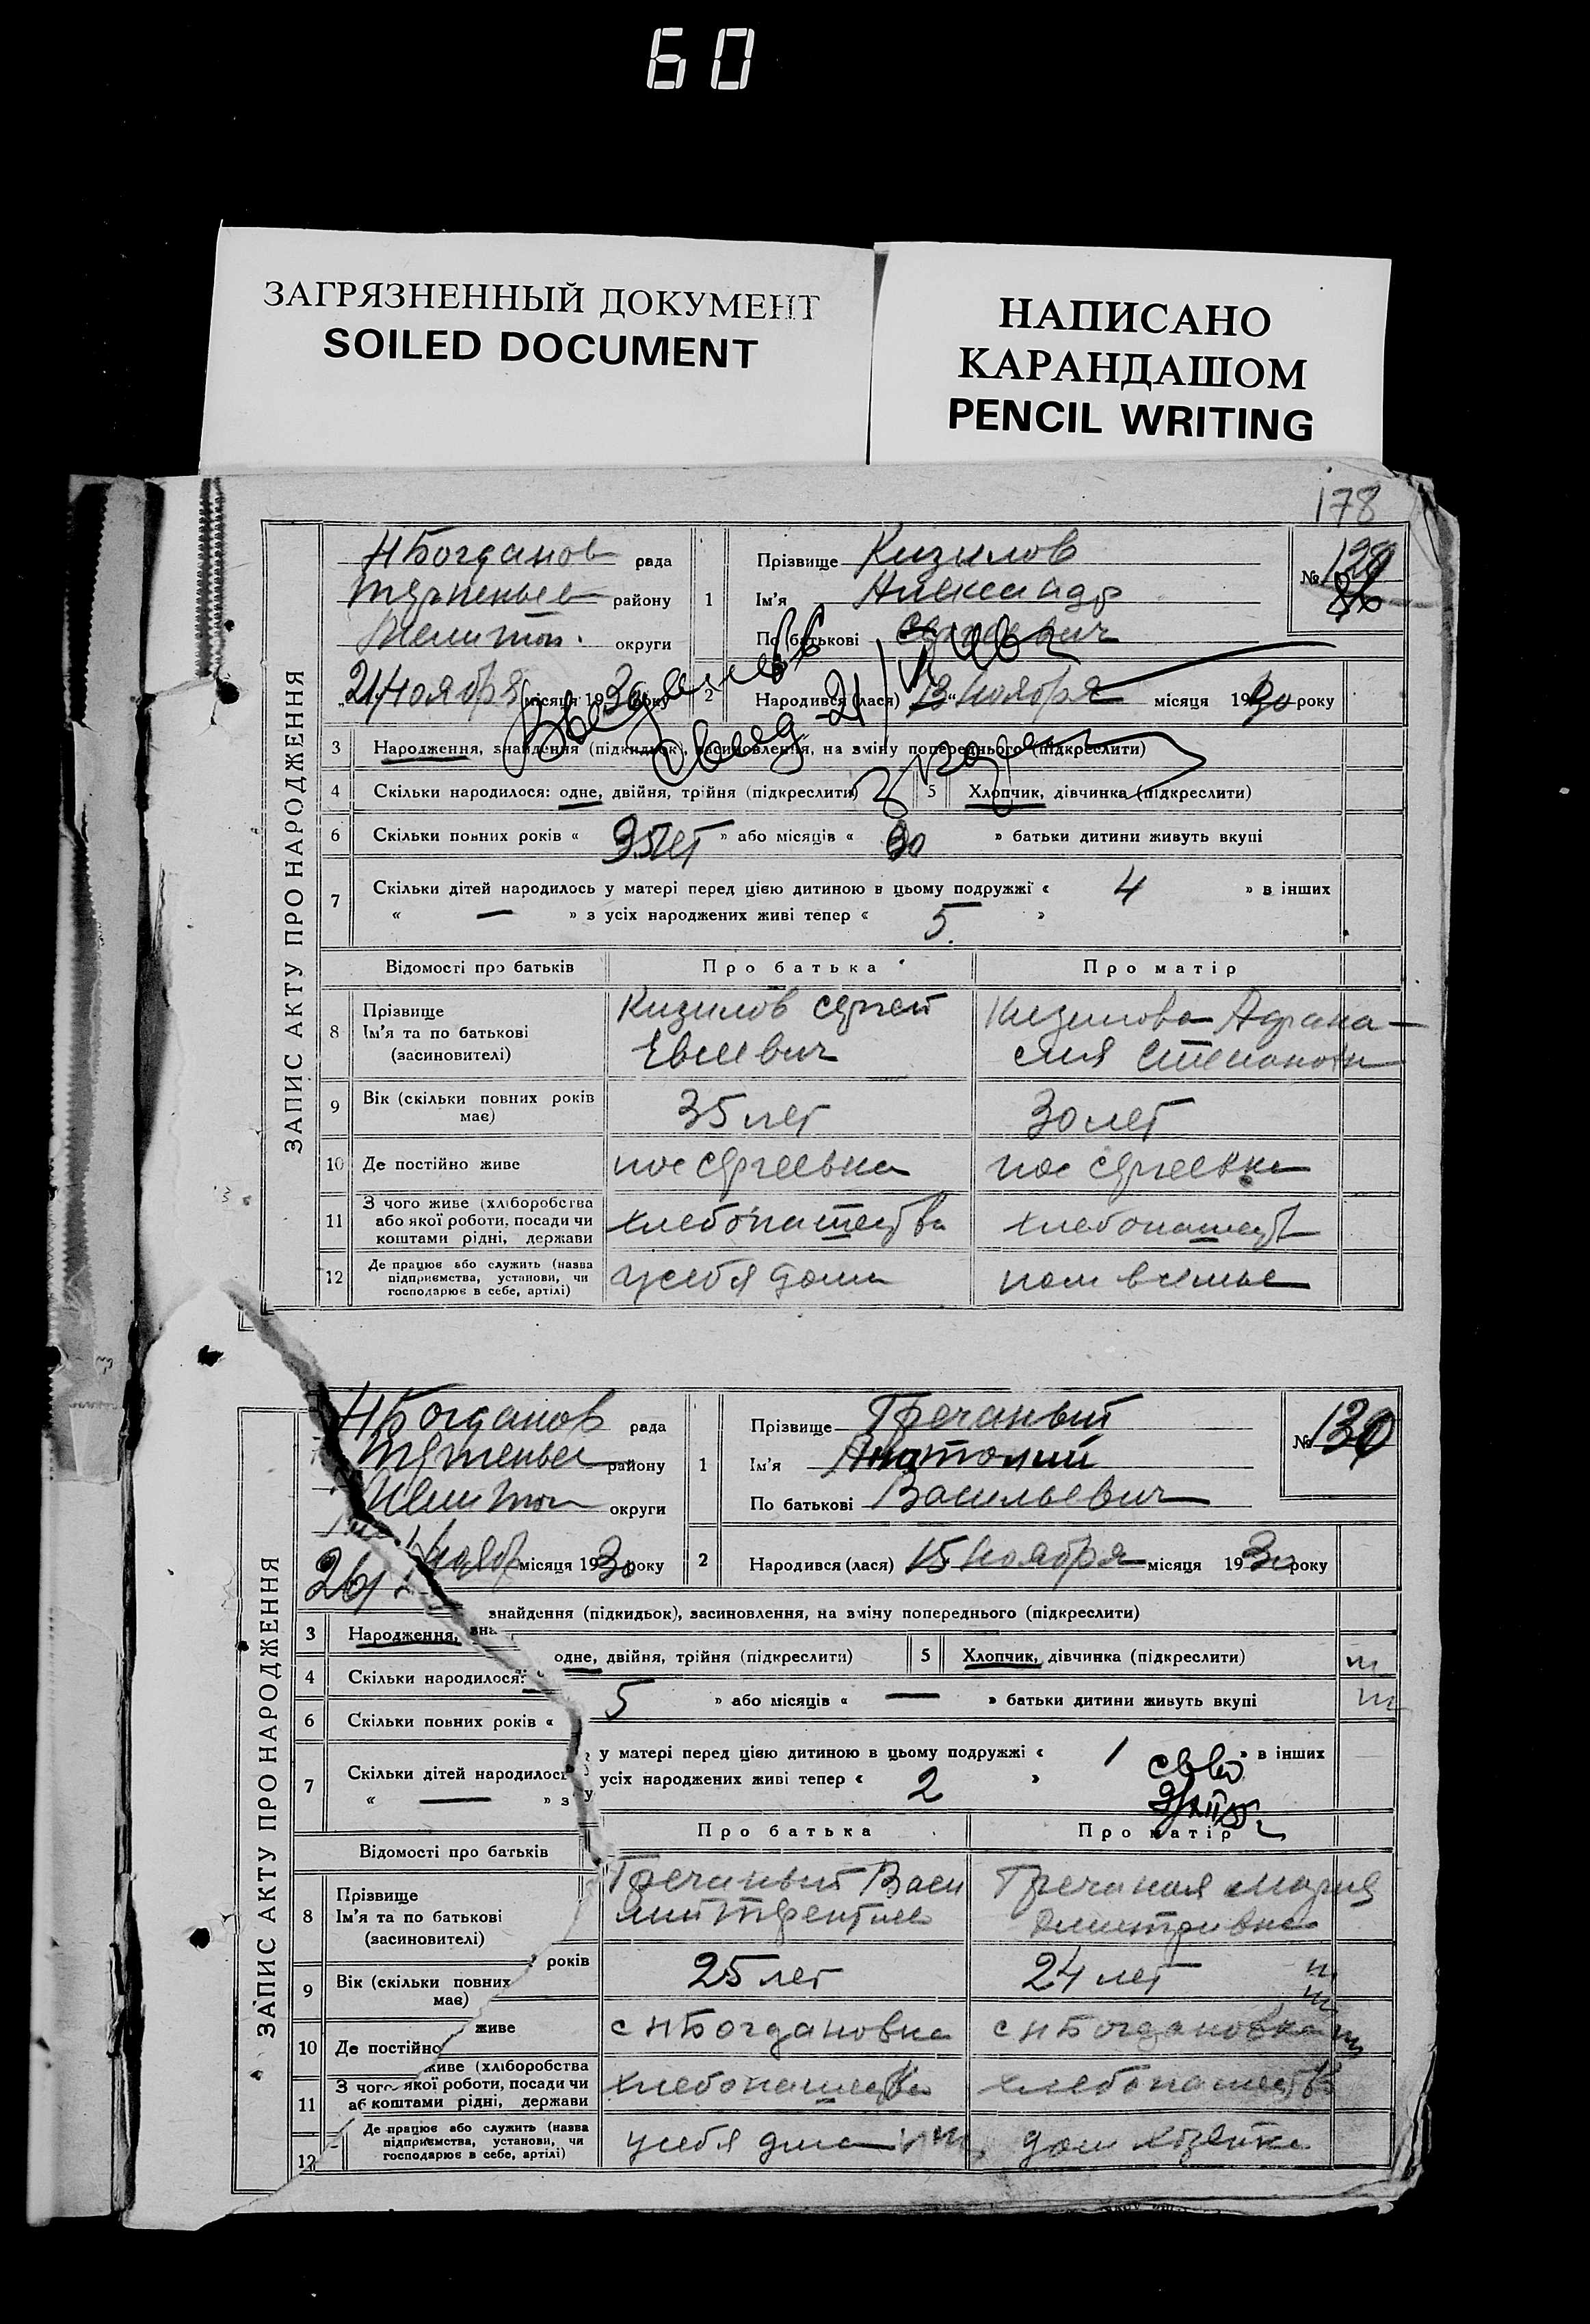 60
ЗАГРЯЗНЕННЫЙ ДОКУМЕНТ
SOILED DOCUMENT
НАПИСАНО
КАРАНДАШОМ
PENCIL WRITING
178
ЗАПИС АКТУ ПРО НАРОДЖЕННЯ
НБогданов рада
району
Мелитоп. округи
21 Ноября місяця 1930 року
1 Прізвище Кизилов
Ім'я Александр
По батькові
№
2 Народився (лася) 13 Ноября місяця 1930 року
3 Народження, знайдення (підкидьок), засиновлення, на зміну попереднього (підкреслити)
4 Скільки народилося: одне, двійня, трійня (підкреслити) 5 Хлопчик, дівчинка (підкреслити)
6 Скільки повних років « » або місяців « » батьки дитини живуть вкупі
7 Скільки дітей народилось у матері перед цією дитиною в цьому подружжі « 4 » в інших
« — » з усіх народжених живі тепер « 5 »
Відомості про батьків Про батька Про матір
8 Прізвище
Ім'я та по батькові
(засиновителі)
Кизилов Сергей
Евсевич
Кизилова
9 Вік (скільки повних років
має)
35 лет 30 лет
10 Де постійно живе пос Сергеевка пос Сергеевка
11 З чого живе (хліборобства
або якої роботи, посади чи
коштами рідні, держави
хлебопашества хлебопашеств
12 Де працює або служить (назва
підприємства, установи, чи
господарює в себе, артілі)
у себя дома
ЗАПИС АКТУ ПРО НАРОДЖЕННЯ
НБогданов рада
району
Мелитоп округи
26 Ноябр місяця 1930 року
1 Прізвище Гречаный
Ім'я Анатолий
По батькові Васильевич
№ 130
2 Народився (лася) 15 Ноября місяця 1930 року
3 Народження, знайдення (підкидьок), засиновлення, на зміну попереднього (підкреслити)
4 Скільки народилося: одне, двійня, трійня (підкреслити) 5 Хлопчик, дівчинка (підкреслити)
6 Скільки повних років « 5 » або місяців « — » батьки дитини живуть вкупі
7 Скільки дітей народилось у матері перед цією дитиною в цьому подружжі « 1 » в інших
« — » з усіх народжених живі тепер « 2 »
Відомості про батьків Про батька Про матір
8 Прізвище
Ім'я та по батькові
(засиновителі)
Гречаный Васи
Гречаная Мария
Дмитривна
9 Вік (скільки повних років
має)
25 лет 24 лет
10 Де постійно живе с НБогдановка с НБогдановка
11 З чого живе (хліборобства
або якої роботи, посади чи
коштами рідні, держави
хлебопашества хлебопашество
12 Де працює або служить (назва
підприємства, установи, чи
господарює в себе, артілі)
у себя дома дом хозяйка